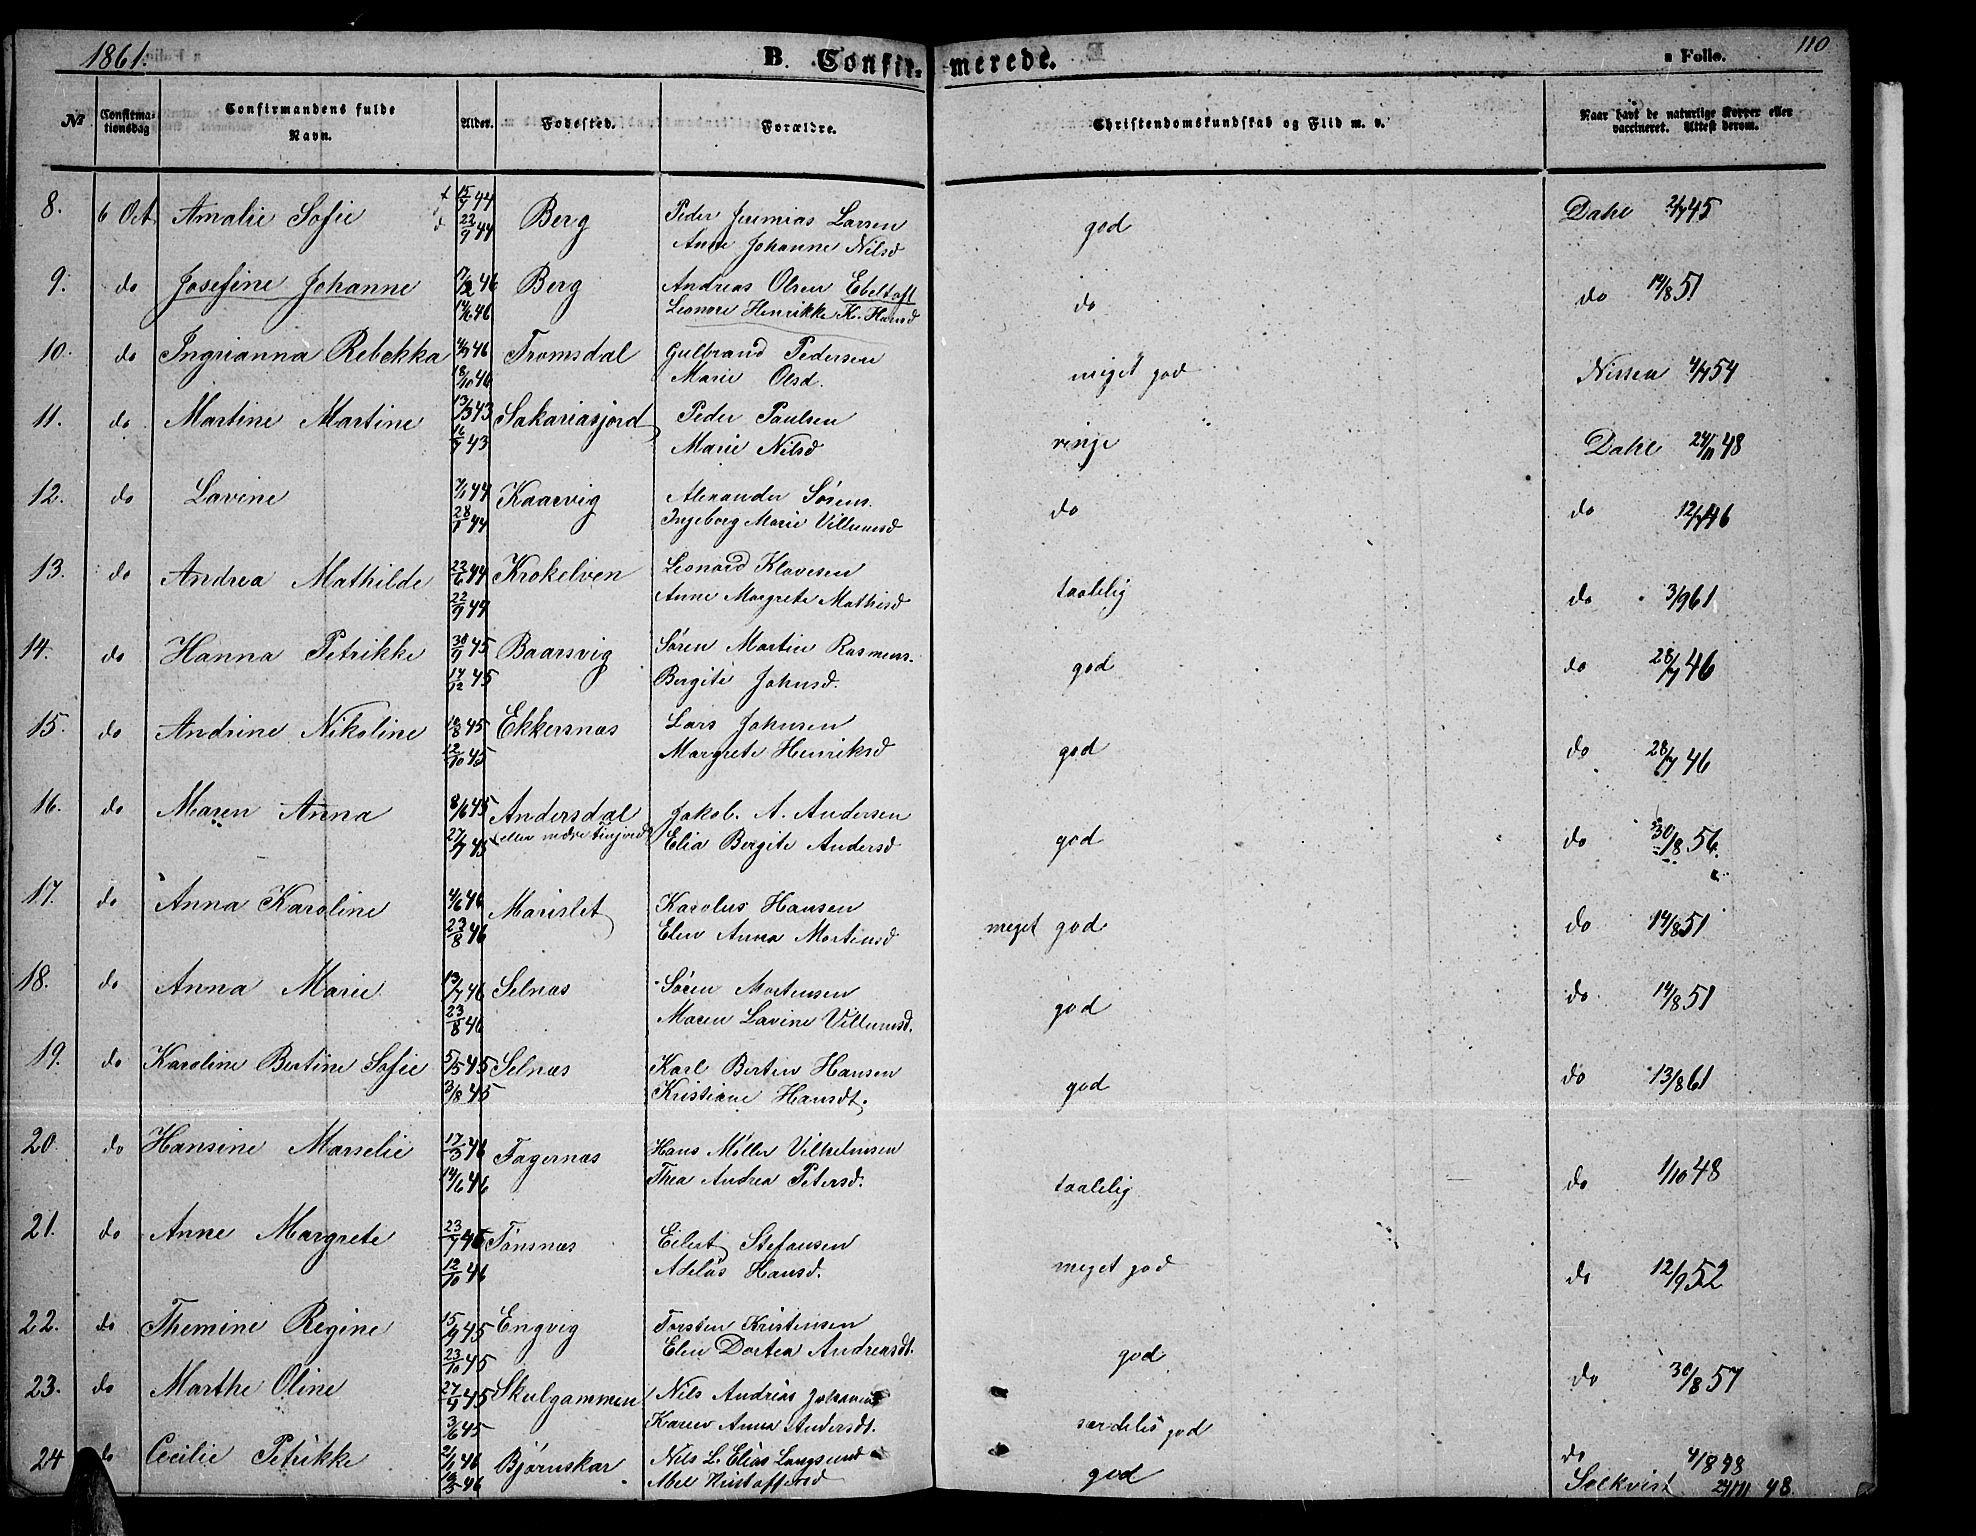 1861.
B. Confirmerede.
a Folio.
110
№
Confirmationsdag
Confirmandens fulde Navn.
Alder.
Fødested.
Forældre.
Christendomskundskab og Flid m. v.
Naar havt de naturlige Kopper eller vaccineret. Attest derom.
8. 6 Oct. Amalie Sofie f 15/7 44 Berg Peder Jeremias Larsen god Dahl 2/7 45
d 22/9 44 Anne Johanne Nilsd
9. do Josefine Johanne 17/2 46 Berg Andreas Olsen Ebeltoft do do 14/8 51
14/6 46 Leonore Henrikke K. Hansd
10. do Ingrianna Rebekka 46 Tromsdal Gulbrand Pedersen meget god Nissen 4/7 54
18/10 46 Marie Olsd.
11. do Martine Martine 13/3 43 Sakariasjord Peder Paulsen ringe Dahl 24/11 48
16/7 43 Marie Nilsd
12. do Lavine 7/1 44 Kaarvig Alexander Sørens. do do 12/7 46
28/1 44 Ingeborg Marie Villumsd
13. do Andrea Mathilde 23/6 44 Krokelven Leonard Klavesen taalelig do 3/9 61
22/9 44 Anne Margrete Mathisd
14. do Hanna Petrikke 30/9 45 Baarsvig Søren Martin Rasmuss. god do 28/7 46
17/12 45 Bergite Johnsd.
15. do Andrine Nikoline 18/8 45 Ekkersnæs Lars Johnsen god do 28/7 46
12/10 45 Margrete Henriksd
16. do Maren Anna 8/6 45 Andersdal Jakob. A. Andersen god do 30/8 56.
27/7 45 eller nedre Elia Bergite Andersd
17. do Anna Karoline 4/6 46 Marislet Karolus Hansen meget god do 14/8 51
23/8 46 Elen Anna Mortensd
18. do Anna Marie 13/7 46 Selnæs Søren Mortensen god do 14/8 51
23/8 46 Maren Lavine Villumsd.
19. do Karoline Bertine Sofie 5/5 45 Selnæs Karl Bertin Hansen god do 13/8 61
3/8 45 Kristiane Hansdt.
20. do Hansine Marselie 17/3 46 Fagernæs Hans Møller Vilhelmsen taalelig do 1/10 48
14/6 46 Thea Andrea Petersd.
21. do Anne Margrete 23/7 46 Tønsnæs Eilert Stefansen meget god do 12/9 52
12/10 46 Adelus Hansd.
22. do Themine Regine 15/9 45 Engvig Torsten Kristensen god do 30/8 57
23/10 45 Elen Dortea Andreasdt.
23. do Marthe Oline 27/4 45 Skulgammen Nils Andreas særdeles god do 4/8 48
3/6 45 Karen Anna Andersdt.
24 do Cecilie Petrikke 2/1 46 Bjørnskar Nils L. Elias Langsund god Selkvist 24/11 48.
46 Abel Kristoffersd